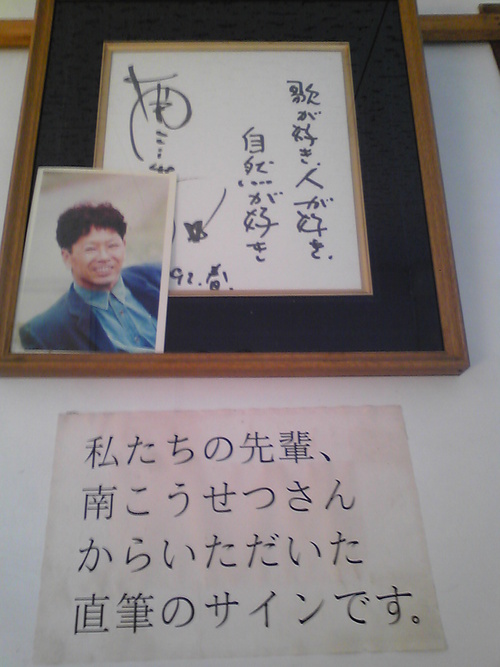 歌が好き、人が好き、
自然が好き
南こうせつ
92.春.
私たちの先輩、
南こうせつさん
からいただいた
直筆のサインです。